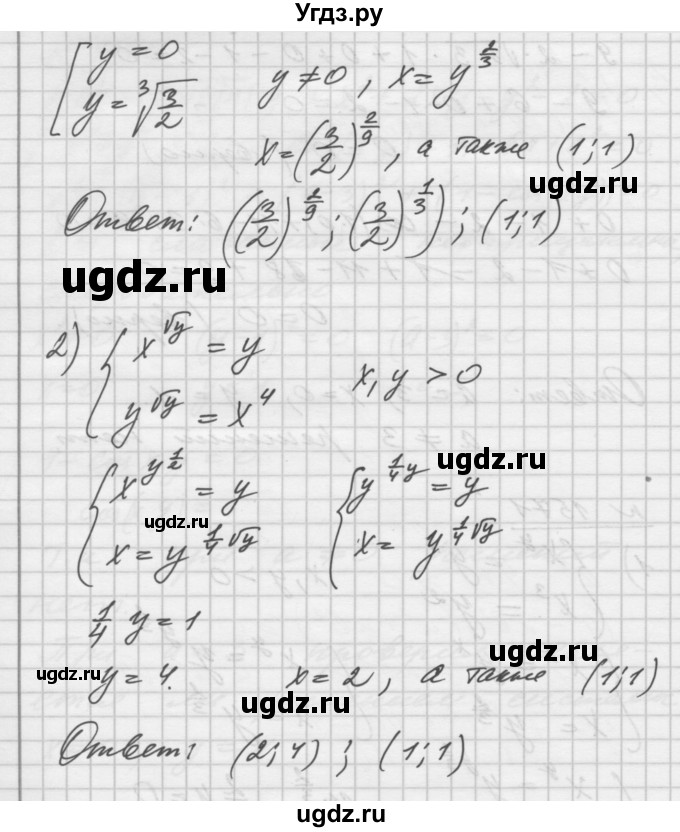 Угдз.ру
y = 0
y = ∛(3/2)  y ≠ 0, x = y^(2/3)
x = (3/2)^(2/9), а также (1; 1)
ugdz.ru
Ответ: ((3/2)^(2/9); (3/2)^(1/3)); (1; 1)
ugdz.ru
2) { x^(√y) = y
y^(√y) = x^4  x, y > 0
ugdz.ru
{ x^(y^(1/2)) = y  { y^(1/4 y) = y
ugdz.ru
x = y^(1/4 √y)  x = y^(1/4 √y)
1/4 y = 1
ugdz.ru
ugdz.ru
y = 4.  x = 2, а также (1; 1)
ugdz.ru
Ответ: (2; 4); (1; 1)
ugdz.ru
ugdz.ru